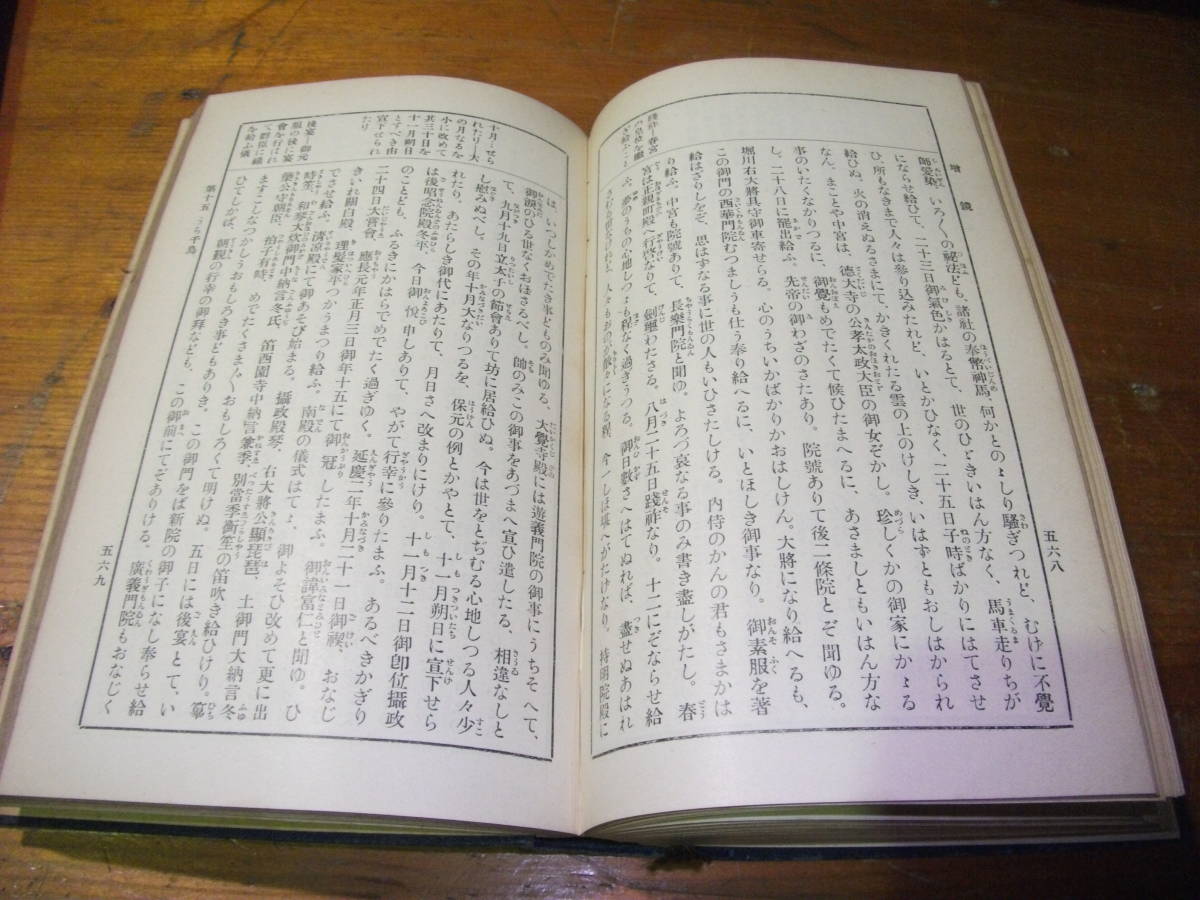 增鏡
五六八
師愛染、いろ〳〵の祕法ども、諸社の奉幣神馬、何かとのゝしり騷ぎつれど、むげに不覺
にならせ給ひて、二十三日御氣色かはるとて、世のひゞきいはん方なく、馬車走りちが
ひ、所もなきまで人々は參り込みたれど、いとかひなく、二十五日子時ばかりにはてさせ
給ひぬ。火の消えぬるさまにて、かきくれたる雲の上のけしき、いはずともおしはかられ
なん。まことや中宮は、德大寺の公孝太政大臣の御女ぞかし。珍しくかの御家にかゝる
事のいたくなかりつるに、御覺もめでたくて候ひたまへるに、あさましともいはん方な
し。二十八日に罷出給ふ。先帝の御わざのさたあり。院號ありて後二條院とぞ聞ゆる。
堀川右大將具守御車寄せらる。心のうちいかばかりかおはしけん。大將になり給へるも、
この御門の西華門院むつましうも仕う奉り給へるに、いとほしき御事なり。御素服を著
給はざりしをぞ、思はずなる事に世の人もいひさたしける。內侍のかんの君もさまかは
り給ふ。中宮も院號ありて、長樂門院と聞ゆ。よろづ哀なる事のみ書き盡しがたし。春
宮は正親町殿へ行啓なりて、劍璽わたさる。八月二十五日踐祚なり。十二にぞならせ給
ふ。夢のうちの心地しつゝも程なく過ぎうつる。御日數さへはてぬれば、盡せぬあはれ
踐祚―春宮
の皇位を繼
は、いつしかめでたき事どものみ聞ゆる、大覺寺殿には遊義門院の御事にうちそへて、
御淚のひる世なくおぼさるべし。帥のみこの御事をあづまへ宣ひ遣したる、相違なしと
て、九月十九日立太子の節會ありて坊に居給ひぬ。今は世をとぢむる心地しつる人々少
し慰みぬべし。その年十月大なりつるを、保元の例とかやとて、十一月朔日に宣下せら
れたり。あたらしき御代にあたりて、月日さへ改まりにけり。十一月十二日御卽位攝政
は後昭念院殿冬平、今日御悅申しありて、やがて行幸に參りたまふ。あるべきかぎり
のことども、ふるきにかはらでめでたく過ぎゆく。延慶二年十月二十一日御禊、おなじ
二十四日大嘗會、應長元年正月三日御年十五にて御冠したまふ。御諱富仁と聞ゆ。ひ
きいれ關白殿、理髮家平つかうまつり給ふ。南殿の儀式はてゝ、御よそひ改めて更に出
でさせ給ふ。淸凉殿にて御あそび始まる。攝政殿琴、右大將公顯琵琶、土御門大納言
時笙、和琴大炊御門中納言冬氏、笛西園寺中納言兼季、別當季衡笙の笛吹き給ひけり。篳
篥公守朝臣、拍子有時、めでたくさま〴〵おもしろくて明けぬ。五日には後宴とて、い
ますこしなつかしうおもしろき事どもありき。この御門をば新院の御子になし奉らせ給
ひてしかば、朝覲の行幸の御拜なども、この御前にてぞありける。廣義門院もおなじく
十月―せら
れたり―大
の月なるを
小に改めて
其三十日を
十一月朔日
とすべき由
宣下せられ
たり
後宴―御元
服の後に宴
會を行はれ
て群臣に祿
を給ふ儀
第十五　うら千鳥
五六九